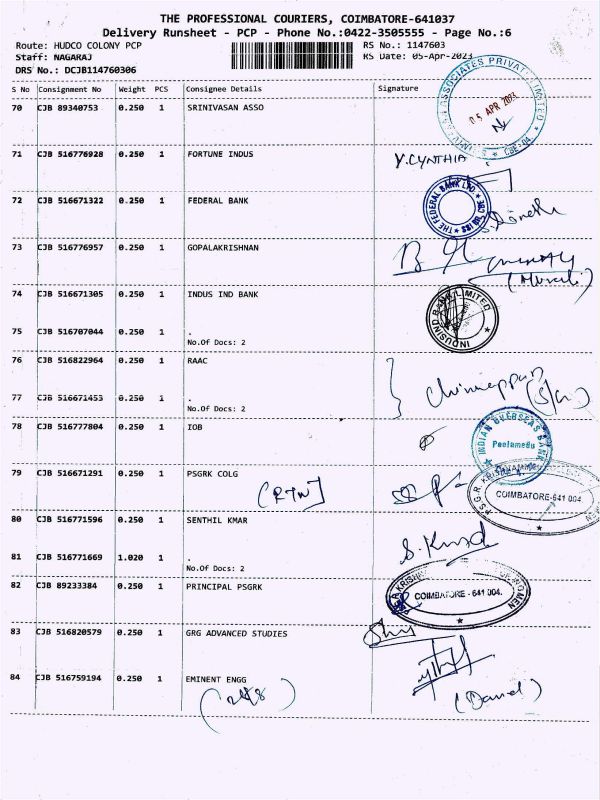 THE PROFESSIONAL COURIERS, COIMBATORE-641037
Delivery Runsheet - PCP - Phone No.:0422-3505555 - Page No.:6
Route: HUDCO COLONY PCP RS No.: 1147603
Staff: NAGARAJ RS Date: 05-Apr-2023
DRS No.: DCJB114760306
S No Consignment No Weight PCS Consignee Details Signature
70 CJB 89340753 0.250 1 SRINIVASAN ASSO
ASSOCIATES PRIVATE LIMITED
05 APR 2023
CBE-04
71 CJB 516776928 0.250 1 FORTUNE INDUS
Y.CYNTHIA
72 CJB 516671322 0.250 1 FEDERAL BANK
THE FEDERAL BANK LTD
73 CJB 516776957 0.250 1 GOPALAKRISHNAN
74 CJB 516671305 0.250 1 INDUS IND BANK
INDUSIND BANK LIMITED
75 CJB 516707044 0.250 1 .
No.Of Docs: 2
76 CJB 516822964 0.250 1 RAAC
77 CJB 516671453 0.250 1 .
No.Of Docs: 2
78 CJB 516777804 0.250 1 IOB
INDIAN OVERSEAS BANK
Peelamedu
79 CJB 516671291 0.250 1 PSGRK COLG
(RTN)
COIMBATORE-641 004.
80 CJB 516771596 0.250 1 SENTHIL KMAR
81 CJB 516771669 1.020 1 .
No.Of Docs: 2
82 CJB 89233384 0.250 1 PRINCIPAL PSGRK
COIMBATORE - 641 004.
83 CJB 516820579 0.250 1 GRG ADVANCED STUDIES
84 CJB 516759194 0.250 1 EMINENT ENGG
(Daniel)